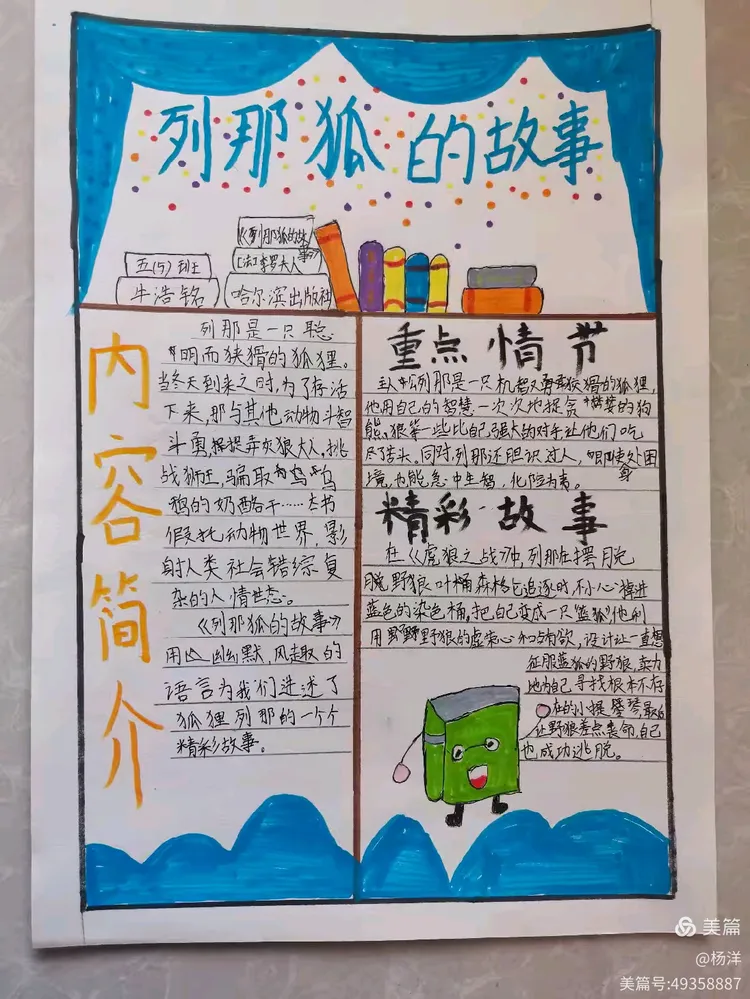 列那狐的故事
五(5)班
牛浩铭
《列那狐的故事》
[法]季罗夫人
哈尔滨出版社
内容简介
列那是一只聪
明而狭猾的狐狸。
当冬天到来之时,为了存活
下来,那与其他动物斗智
斗勇,捉毒灰狼大人,挑
战狮王,骗取乌
鸦的奶酪干……本书
假托动物世界,影
射人类社会错综复
杂的人情世态。
《列那狐的故事》
用幽默,风趣的
语言为我们讲述了
狐狸列那的一个个
精彩故事。
重点情节
主人公列那是一只机智又勇敢狡猾的狐狸,
他用自己的智慧一次次地捉贪婪的狗
熊、狼等一些比自己强大的对手让他们吃
尽了苦头。同时,列那还胆识过人,即使身处困
境,也能急中生智,化险为夷。
精彩故事
在《虎狼之战》中,列那在摆脱
野狼叶桶森格它追逐时,不小心掉进
蓝色的染色桶,把自己变成一只"蓝狐"他利
用野狼的虚荣心和占有欲,设计让一直想
征服蓝狐的野狼,卖力
地为自己寻找根本不存
在的小提琴,最后
让野狼差点丧命,自己
也成功逃脱。
美篇
@杨洋
美篇号:49358887